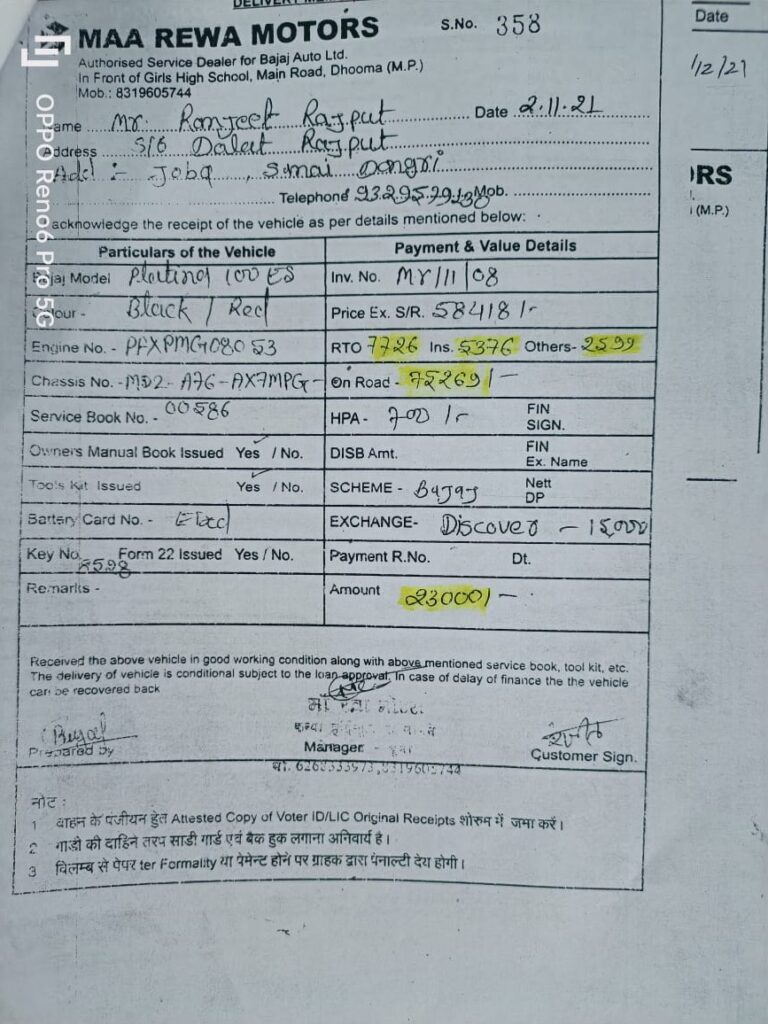 DELIVERY
MAA REWA MOTORS
S.No. 358
Authorised Service Dealer for Bajaj Auto Ltd.
In Front of Girls High School, Main Road, Dhooma (M.P.)
Mob.: 8319605744
Name Mr. Ranjeet Rajput Date 2.11.21
Address S/o Dalat Rajput
Add :- Joba, Simai Dongri
Telephone Mob.
acknowledge the receipt of the vehicle as per details mentioned below:
Particulars of the Vehicle Payment & Value Details
Bajaj Model Platina 100 ES Inv. No. MY/11/08
Colour - Black / Red Price Ex. S/R. 58418/-
Engine No. - PFXPMG08053 RTO 7726 Ins. 5376 Others- 2599
Chassis No. - MD2-A76-AX7MPG- On Road - 75269/-
Service Book No. - 00586 HPA- 700/- FIN SIGN.
Owners Manual Book Issued Yes / No. DISB Amt. FIN Ex. Name
Tools Kit Issued Yes / No. SCHEME - Bajaj Nett DP
Battery Card No. - EXCD EXCHANGE- Discover - 15000
Key No. 8598 Form 22 Issued Yes / No. Payment R.No. Dt.
Remarks - Amount 23000/-
Received the above vehicle in good working condition along with above mentioned service book, tool kit, etc.
The delivery of vehicle is conditional subject to the loan approval. In case of delay of finance the the vehicle
can be recovered back
मॉं रेवा मोटर्स
Prepared by Manager Customer Sign.
मो. 6268333973,8319605744
नोट :
1 वाहन के पंजीयन हेतु Attested Copy of Voter ID/LIC Original Receipts शोरुम में जमा करें।
2 गाड़ी की दाहिने तरप साडी गार्ड एवं बैक हुक लगाना अनिवार्य है।
3 विलम्ब से पेपर ter Formality या पेमेन्ट होने पर ग्राहक द्वारा पेनाल्टी देय होगी।
Date
1/12/21
ORS
(M.P.)
OPPO Reno6 Pro 5G